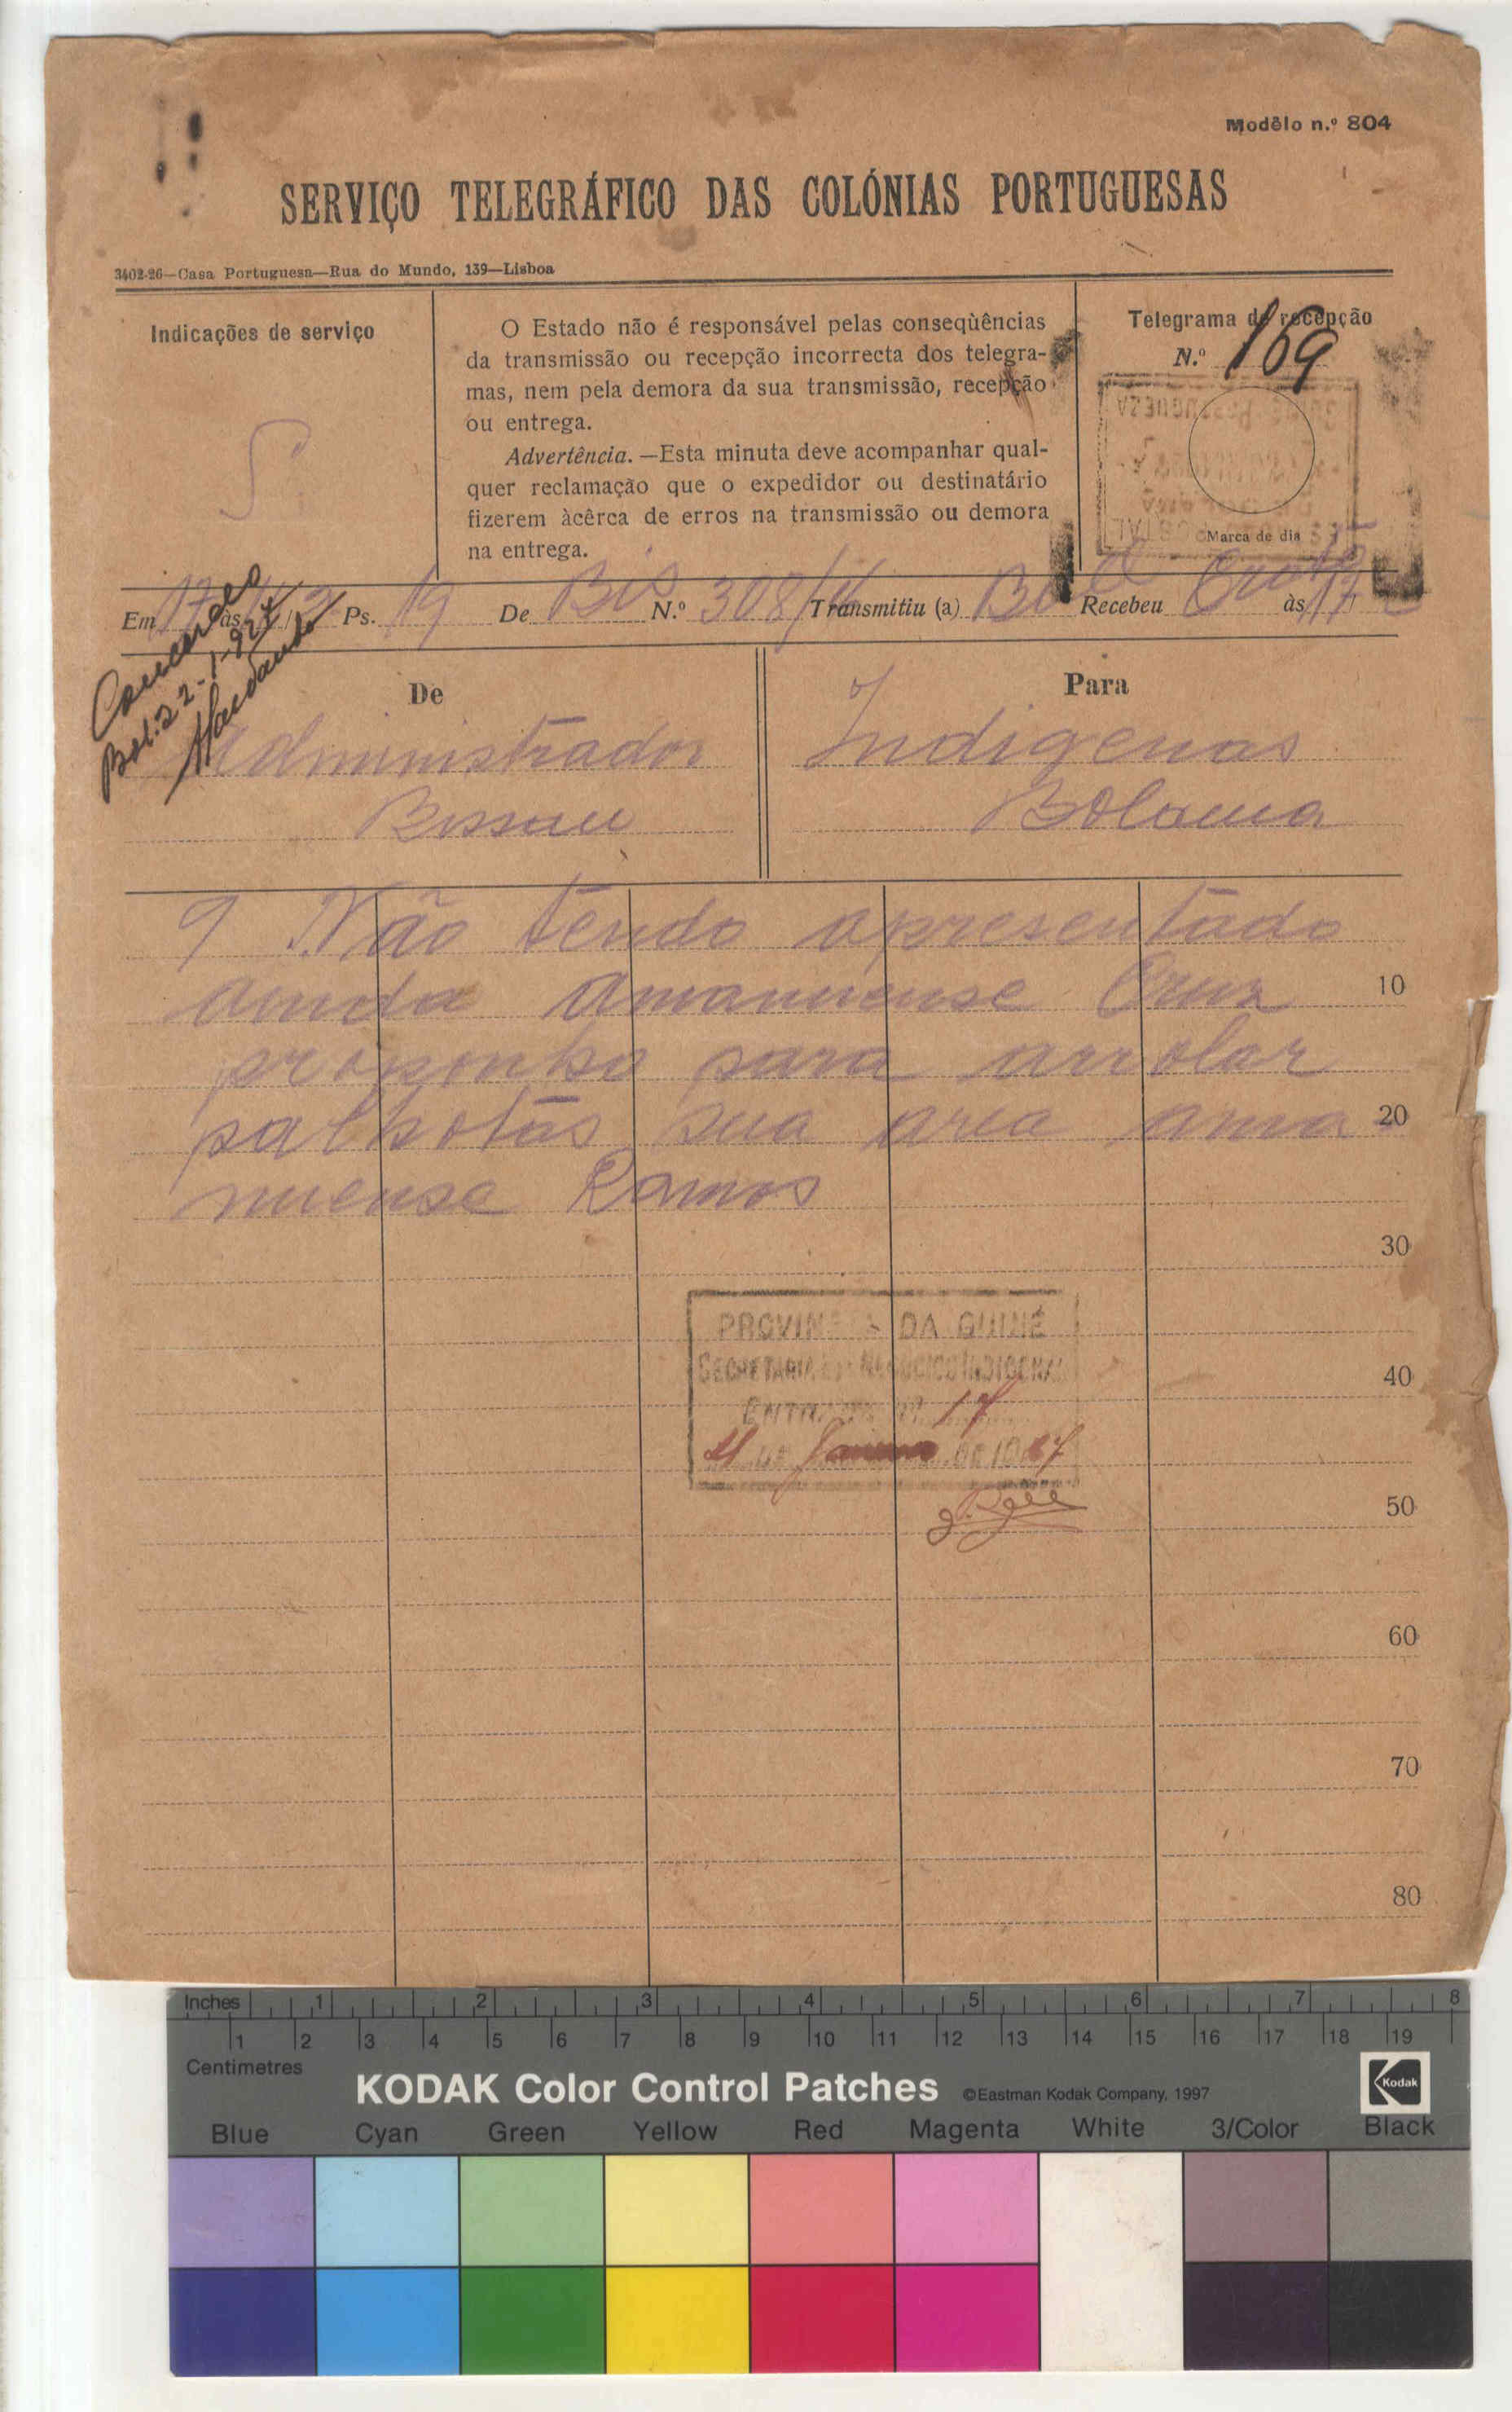 Modêlo n.º 804
SERVIÇO TELEGRÁFICO DAS COLÓNIAS PORTUGUESAS
3402-26—Casa Portuguesa—Rua do Mundo, 139—Lisboa
Indicações de serviço
S.
O Estado não é responsável pelas conseqùências
da transmissão ou recepção incorrecta dos telegra-
mas, nem pela demora da sua transmissão, recepção
ou entrega.
Advertência.—Esta minuta deve acompanhar qual-
quer reclamação que o expedidor ou destinatário
fizerem àcêrca de erros na transmissão ou demora
na entrega.
Telegrama de recepção
N.º 169
Marca de dia
Em 17 às Ps. 19 De Bis N.º 308/16 Transmitiu (a) Recebeu às
Concordo
Bol. 22-1-927
De
Administrador
Bissau
Para
Indigenas
Bolama
9 Não tendo apresentado
ainda amanuense Cruz
proponho para arrolar
palhotas sua area ama
nuense Ramos
10
20
30
40
50
60
70
80
PROVINCIA DA GUINÉ
SECRETARIA DOS NEGOCIOS INDIGENAS
ENTRADA N.º 17
de Janeiro de 1927
Inches 1 2 3 4 5 6 7 8
1 2 3 4 5 6 7 8 9 10 11 12 13 14 15 16 17 18 19
Centimetres
KODAK Color Control Patches ©Eastman Kodak Company, 1997 Kodak
Blue Cyan Green Yellow Red Magenta White 3/Color Black